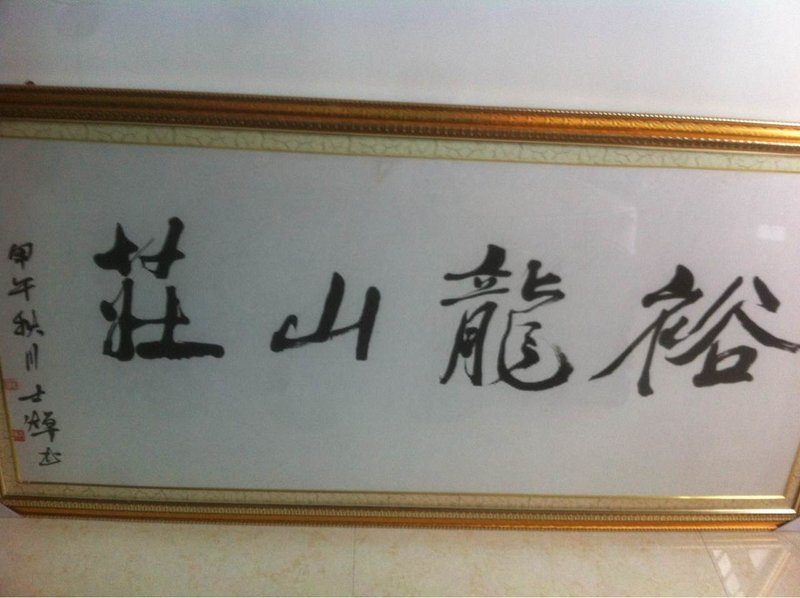 裕龍山莊
甲午秋月士焯书